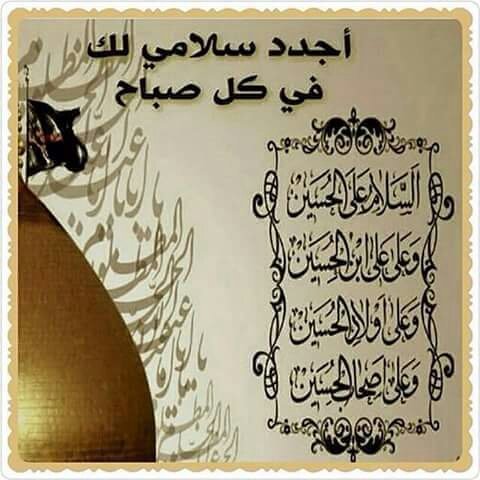 أجدد سلامي لك
في كل صباح
السَّلَامُ عَلَى الْحُسَيْن
وَعَلَى عَلِيِّ ابْنِ الْحُسَيْن
وَعَلَى أَوْلَادِ الْحُسَيْن
وَعَلَى أَصْحَابِ الْحُسَيْن